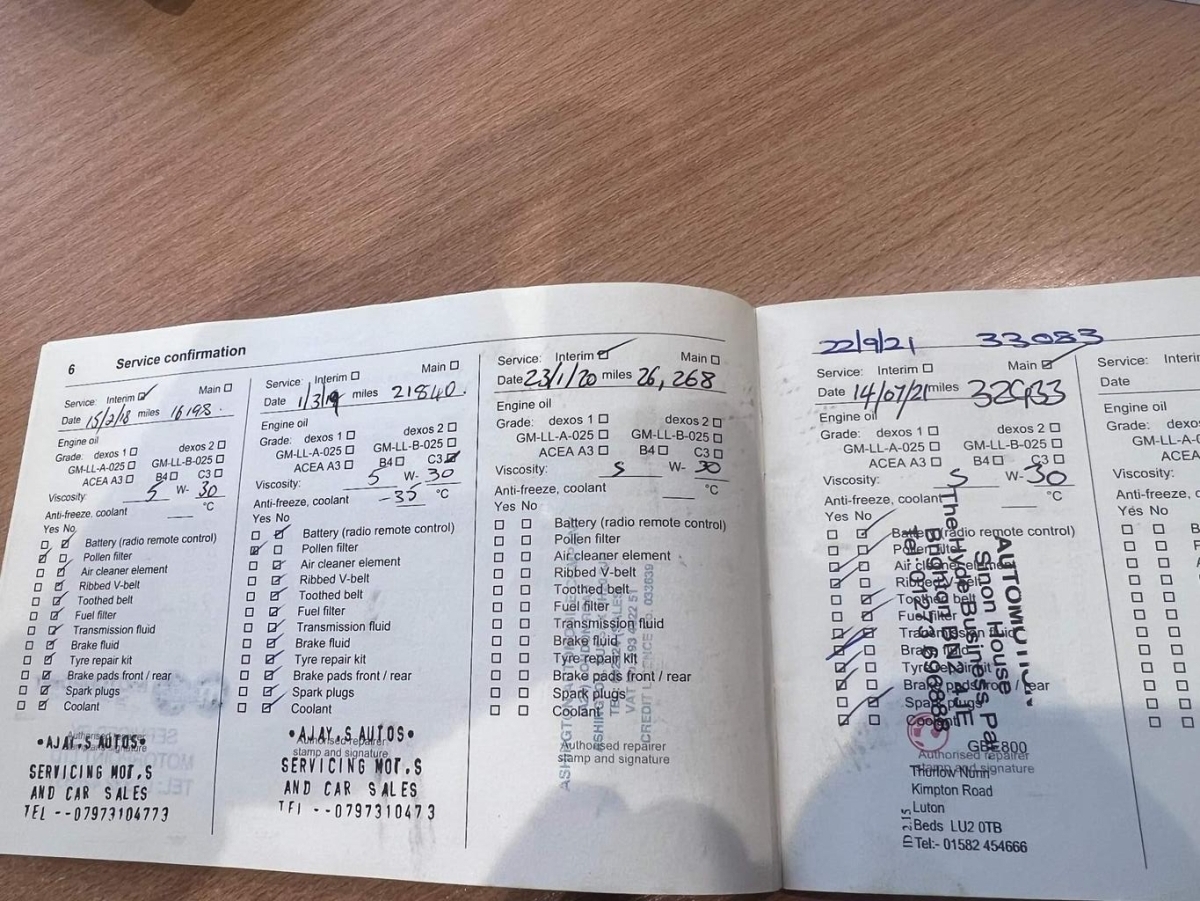 6 Service confirmation
Service: Interim Main
Date 15/2/18 miles 16198
Engine oil
Grade: dexos 1 dexos 2
GM-LL-A-025 GM-LL-B-025
ACEA A3 B4 C3
Viscosity: 5 W- 30
Anti-freeze, coolant °C
Yes No
Battery (radio remote control)
Pollen filter
Air cleaner element
Ribbed V-belt
Toothed belt
Fuel filter
Transmission fluid
Brake fluid
Tyre repair kit
Brake pads front / rear
Spark plugs
Coolant
Authorised repairer
stamp and signature
•AJAY.S AUTOS•
SERVICING MOT,S
AND CAR SALES
TEL --07973104773
Service: Interim Main
Date 1/3/19 miles 21840.
Engine oil
Grade: dexos 1 dexos 2
GM-LL-A-025 GM-LL-B-025
ACEA A3 B4 C3
Viscosity: 5 W- 30
Anti-freeze, coolant -35 °C
Yes No
Battery (radio remote control)
Pollen filter
Air cleaner element
Ribbed V-belt
Toothed belt
Fuel filter
Transmission fluid
Brake fluid
Tyre repair kit
Brake pads front / rear
Spark plugs
Coolant
•AJAY.S AUTOS•
Authorised repairer
stamp and signature
SERVICING MOT,S
AND CAR SALES
Service: Interim Main
Date 23/1/20 miles 26,268
Engine oil
Grade: dexos 1 dexos 2
GM-LL-A-025 GM-LL-B-025
ACEA A3 B4 C3
Viscosity: 5 W- 30
Anti-freeze, coolant °C
Yes No
Battery (radio remote control)
Pollen filter
Air cleaner element
Ribbed V-belt
Toothed belt
Fuel filter
Transmission fluid
Brake fluid
Tyre repair kit
Brake pads front / rear
Spark plugs
Coolant
CREDIT LICENCE No. 033639
Authorised repairer
stamp and signature
22/9/21 33083
Service: Interim Main
Date 14/07/21 miles
Engine oil
Grade: dexos 1 dexos 2
GM-LL-A-025 GM-LL-B-025
ACEA A3 B4 C3
Viscosity: 5 W- 30
Anti-freeze, coolant °C
Yes No
Battery (radio remote control)
Pollen filter
Air cleaner element
Ribbed V-belt
Toothed belt
Fuel filter
Transmission fluid
Brake fluid
Tyre repair kit
Brake pads front / rear
Spark plugs
Coolant
Sinon House
The Hyde Business
Brighton BN2 4JE
Tel: 01273 696888
GBE800
Authorised repairer
stamp and signature
Thurlow Nunn
Kimpton Road
Luton
Beds LU2 0TB
Tel:- 01582 454666
Service:
Date
Engine oil
Grade:
Viscosity:
Anti-freeze,
Yes No